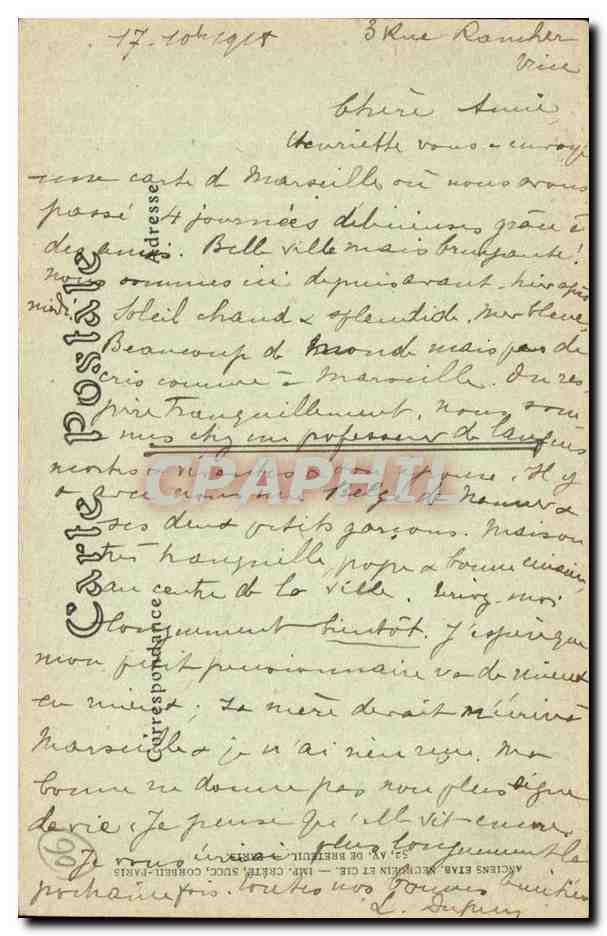 17-10bre 1918
3 Rue Rancher
Nice
Chère Amie,
Henriette vous a envoyé
une carte de Marseille où nous avons
passé 4 journées délicieuses grâce à
des amis. Belle ville mais bruyante!
nous sommes ici depuis avant-hier après
midi. Soleil chaud & splendide. Mer bleue,
Beaucoup de monde mais pas de
cris comme à Marseille. On res-
pire tranquillement. nous som-
mes chez un professeur de langues
mortes &
a avec nous une Belge de Namur &
ses deux petits garçons. Maison
très tranquille, propre & bonne cuisine,
au centre de la ville. Ecrivez-moi
longuement bientôt. J'espère que
mon petit pensionnaire va de mieux
en mieux; Sa mère devait m'écrire à
Marseille & je n'ai rien reçu. Ma
bonne ne donne pas non plus signe
de vie. Je pense qu'elle vit encore.
Je vous écrirai plus longuement la
prochaine fois. toutes nos bonnes amitiés
L. Dupuy
Carte Postale
Adresse
Correspondance
ANCIENS ETAB. NEURDEIN ET CIE. — IMP. CRÉTÉ, SUCC, CORBEIL-PARIS
52, AV. DE BRETEUIL, PARIS.
(06)
CPAPHIL